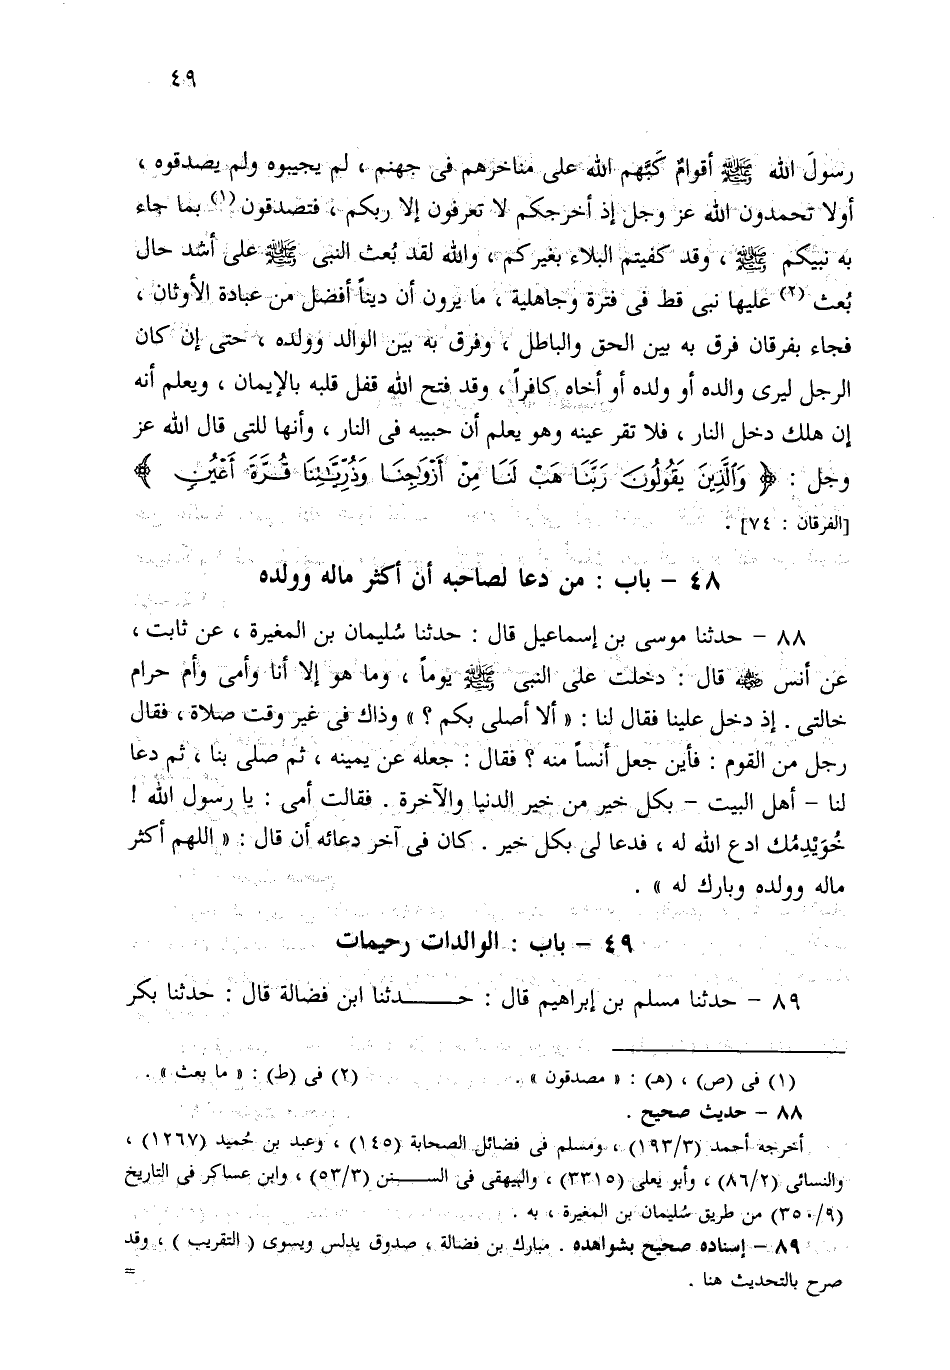 ٤٩
رسولَ الله ﷺ أقوامٌ كَبَّهم الله على مناخرهم فى جهنم ، لم يجيبوه ولم يصدقوه ،
أولا تحمدون الله عز وجل إذ أخرجكم لا تعرفون إلا ربكم ، فتصدقون (١) بما جاء
به نبيكم ﷺ ، وقد كفيتم البلاء بغيركم ، والله لقد بُعث النبى ﷺ على أشد حال
بُعث (٢) عليها نبى قط فى فترة وجاهلية ، ما يرون أن ديناً أفضل من عبادة الأوثان ،
فجاء بفرقان فرق به بين الحق والباطل ، وفرق به بين الوالد وولده ، حتى إن كان
الرجل ليرى والده أو ولده أو أخاه كافراً ، وقد فتح الله قفل قلبه بالإيمان ، ويعلم أنه
إن هلك دخل النار ، فلا تقر عينه وهو يعلم أن حبيبه فى النار ، وأنها للتى قال الله عز
وجل : ﴿ وَالَّذِينَ يَقُولُونَ رَبَّنَا هَبْ لَنَا مِنْ أَزْوَاجِنَا وَذُرِّيَّاتِنَا قُرَّةَ أَعْيُنٍ ﴾
[الفرقان : ٧٤] .
٤٨ – باب : من دعا لصاحبه أن أكثر ماله وولده
٨٨ – حدثنا موسى بن إسماعيل قال : حدثنا سُليمان بن المغيرة ، عن ثابت ،
عن أنس ﵁ قال : دخلت على النبى ﷺ يوماً ، وما هو إلا أنا وأمى وأم حرام
خالتى . إذ دخل علينا فقال لنا : « ألا أصلى بكم ؟ » وذاك فى غير وقت صلاة ، فقال
رجل من القوم : فأين جعل أنساً منه ؟ فقال : جعله عن يمينه ، ثم صلى بنا ، ثم دعا
لنا – أهل البيت – بكل خير من خير الدنيا والآخرة . فقالت أمى : يا رسول الله !
خُوَيْدِمُك ادع الله له ، فدعا لى بكل خير . كان فى آخر دعائه أن قال : « اللهم أكثر
ماله وولده وبارك له » .
٤٩ – باب : الوالدات رحيمات
٨٩ – حدثنا مسلم بن إبراهيم قال : حــــدثنا ابن فضالة قال : حدثنا بكر
(١) فى (ص) ، (هـ) : « مصدقون » . (٢) فى (ط) : « ما بعث » .
٨٨ – حديث صحيح .
أخرجه أحمد (١٩٣/٣) ، ومسلم فى فضائل الصحابة (١٤٥) ، وعبد بن حُميد (١٢٦٧) ،
والنسائى (٨٦/٢) ، وأبو يعلى (٣٣١٥) ، والبيهقى فى الســــنن (٥٣/٣) ، وابن عساكر فى التاريخ
(٣٥٠/٩) من طريق سُليمان بن المغيرة ، به .
٨٩ – إسناده صحيح بشواهده . مبارك بن فضالة ، صدوق يدلس ويسوى ( التقريب ) ، وقد
صرح بالتحديث هنا . =